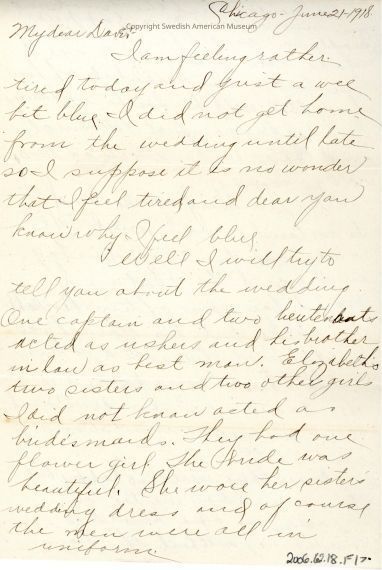 Chicago - June 21 - 1918.
Copyright Swedish American Museum
My dear Dave:-
I am feeling rather
tired today and just a wee
bit blue. I did not get home
from the wedding until late
so I suppose it is no wonder
that I feel tired and dear you
know why I feel blue
Well I will try to
tell you about the wedding.
One captain and two lieutenants
acted as ushers and his brother
in law as best man. Elizabeth's
two sisters and two other girls
I did not know acted as
bridesmaids. They had one
flower girl. The bride was
beautiful. She wore her sister's
wedding dress and of course
the men were all in
uniform.
2006.62.18.F1>